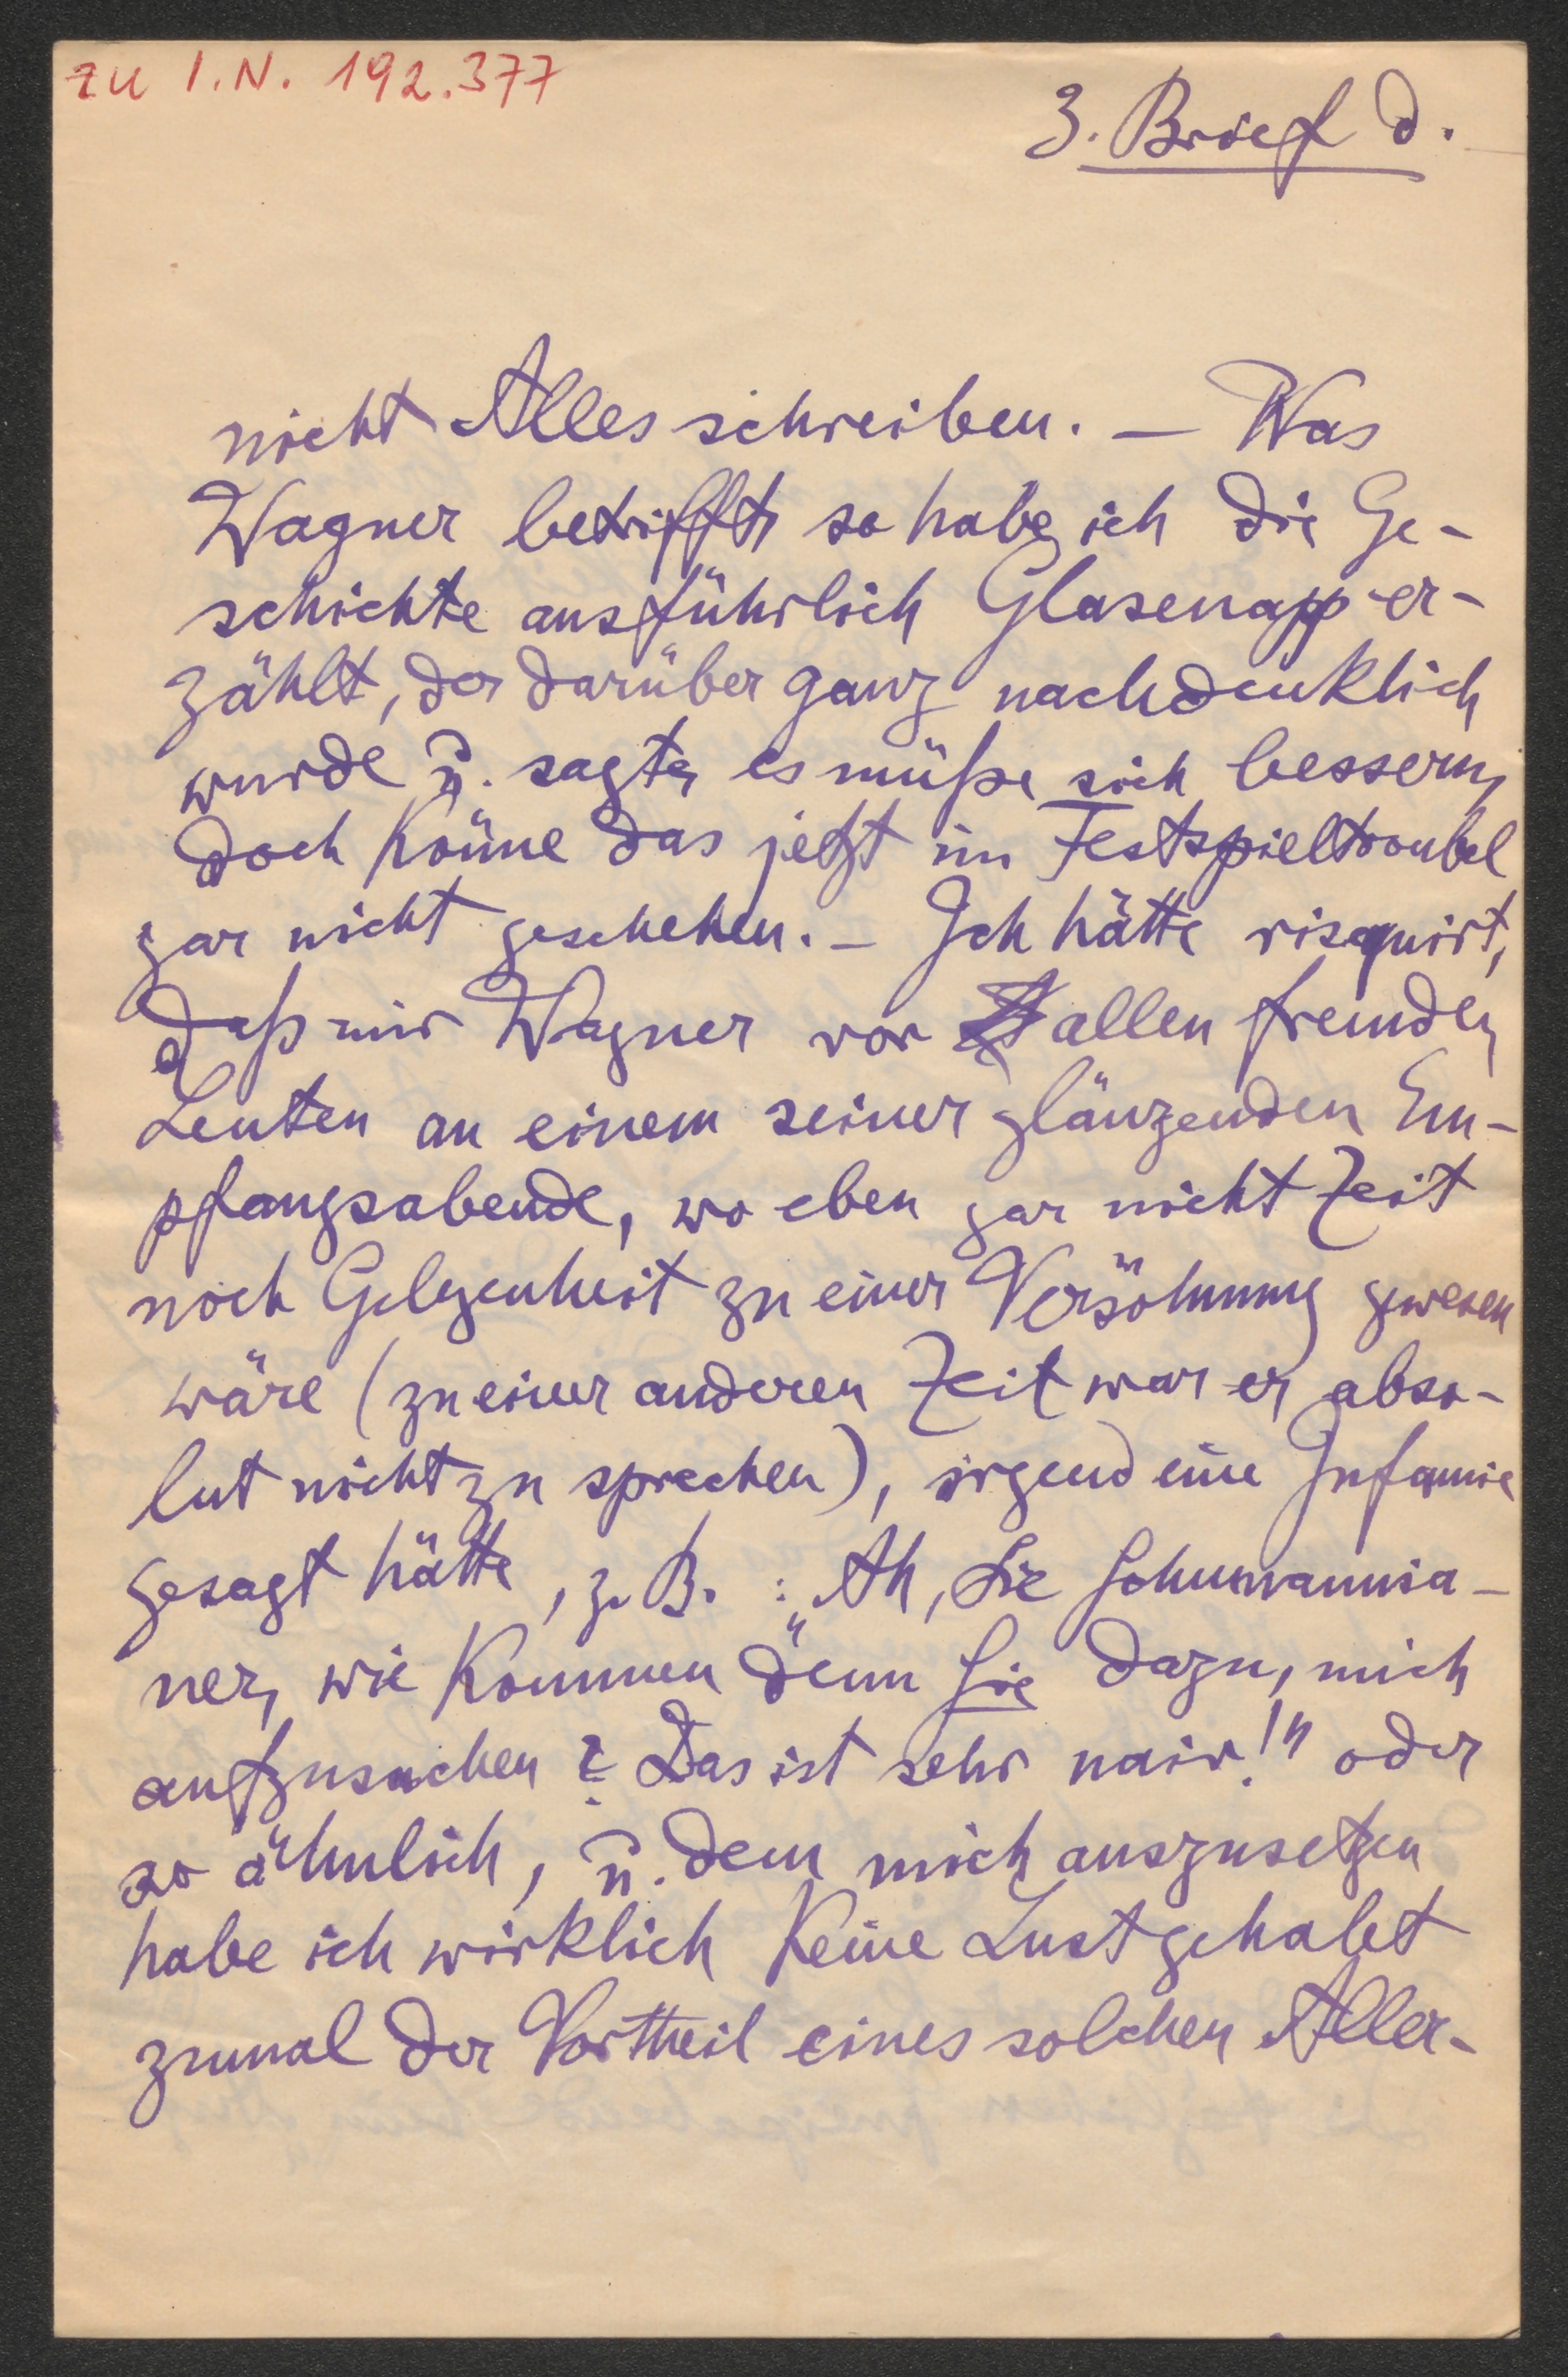 zu I.N. 192.377
3. Brief d.
nicht Alles schreiben. — Was
Wagner betrifft so habe ich die Ge-
schichte ausführlich Glasenapp er-
zählt, der darüber ganz nachdenklich
wurde u. sagte, es müße sich bessern,
doch könne das jetzt im Festspieltroubel
gar nicht geschehen. — Ich hätte risquirt,
daß mir Wagner vor allen fremden
Leuten an einem seiner glänzenden Em-
pfangsabende, wo eben gar nicht Zeit
noch Gelegenheit zu einer Versöhnung gewesen
wäre (zu einer anderen Zeit war er abso-
lut nicht zu sprechen), irgend eine Infamie
gesagt hätte, z. B. : „Ah, Sie Schumannia-
ner, wie kommen denn Sie dazu, mich
aufzusuchen? Das ist sehr naiv!" oder
so ähnlich, u. dem mich auszusetzen
habe ich wirklich keine Lust gehabt
zumal der Vortheil eines solchen Aller-